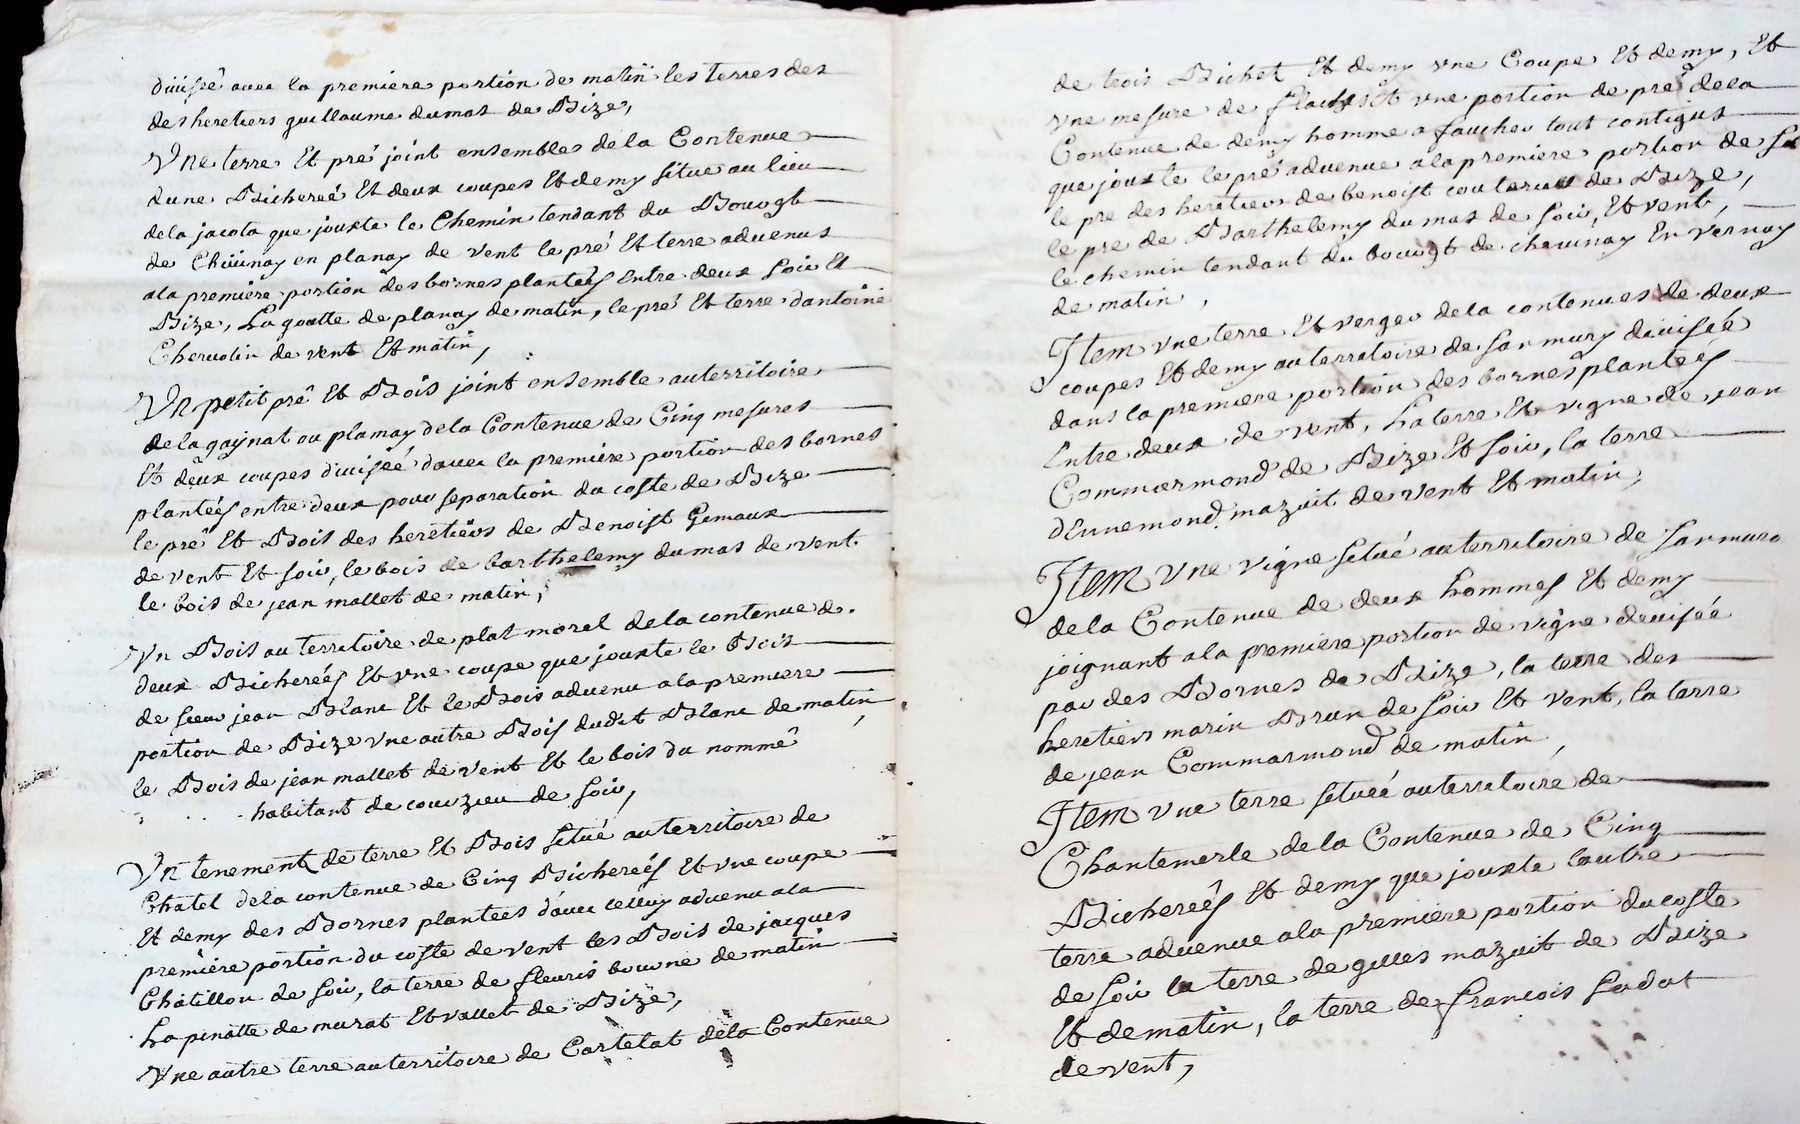 diuisée auec la premiere portion de matin les terres des
des heretiers guillaume dumas de Bize,
Une terre Et pré joint ensembles de la Contenue
dune Bichereé Et deux coupes Et demy situe au lieu
dela jacota que jouxte le Chemin tendant du Bourgt
de Cheuinay en planay de vent le pré Et terre aduenus
ala premiere portion des bornes plantées Entre deux soir Et
Bize, La goutte de planay de matin, le pré Et terre dantoine
Cheruolin de vent Et matin,
Un petit pré Et Bois joint ensemble auterritoire
de la gaynat ou plamay dela Contenue de Cinq mesures
Et deux coupes diuiseé dauec la premiere portion des bornes
plantées entre deux pour separation du coste de Bize
le pré Et Bois des heretiers de Benoist Gemaux
de vent Et soir, le bois de barthelemy dumas de vent.
le bois de jean mallet de matin,
Un Bois au territoire de plat morel dela contenue de
deux Bichereés Et vne coupe que jouxte le Bois
de sieur jean Blanc Et le Bois aduenu ala premiere
portion de Bize vne autre Bois dudit Blanc de matin
le Bois de jean mallet de vent Et le bois du nommé
habitant de courzieu de soir,
Un tenement de terre Et Bois situé auterritoire de
Chatel dela contenue de Cinq Bichereés Et vne coupe
Et demy des Bornes plantees dauec celluy aduenu ala
premiere portion du coste de vent les Bois de jacques
Chatillon de soir, la terre de fleuris bourne de matin
La pinatte de murat Et vallet de Bize,
Vne autre terre auterritoire de Cartelat dela Contenue
de trois Bichet Et demy vne Coupe Et demy, Et
vne mesure de Et vne portion de pré dela
Contenue de demy homme a faucher tout contigus
que jouxte le pré aduenue ala premiere portion de
le pre des heretiers de benoist couturier de Bize,
le pre de Barthelemy dumas de soir, Et vent,
le chemin tendant du bourgt de cheuinay En vernay
de matin,
Item vne terre Et verger dela contenues de deux
coupes Et demy auterratoire de sarmury diuisée
dans la premiere portion des bornes plantées
Entre deux de vent, La terre Et vigne de jean
Commarmond de Bize Et soir, la terre
dEnnemond mazuit de vent Et matin,
Item vne vigne situé auterritoire de sarmura
dela Contenue de deux hommes Et demy
joignant ala premiere portion de vigne deuisée
par des Bornes de Bize, la terre des
heretiers marin Brun de soir Et vent, la terre
de jean Commarmond de matin,
Item vne terre situeé auterritoire de
Chantemerle dela Contenue de Cinq
Bichereés Et demy que jouxte lautre
terre aduenue ala premiere portion du coste
de soir la terre de gilles mazuit de Bize
Et dematin, la terre de francois sadot
de vent,